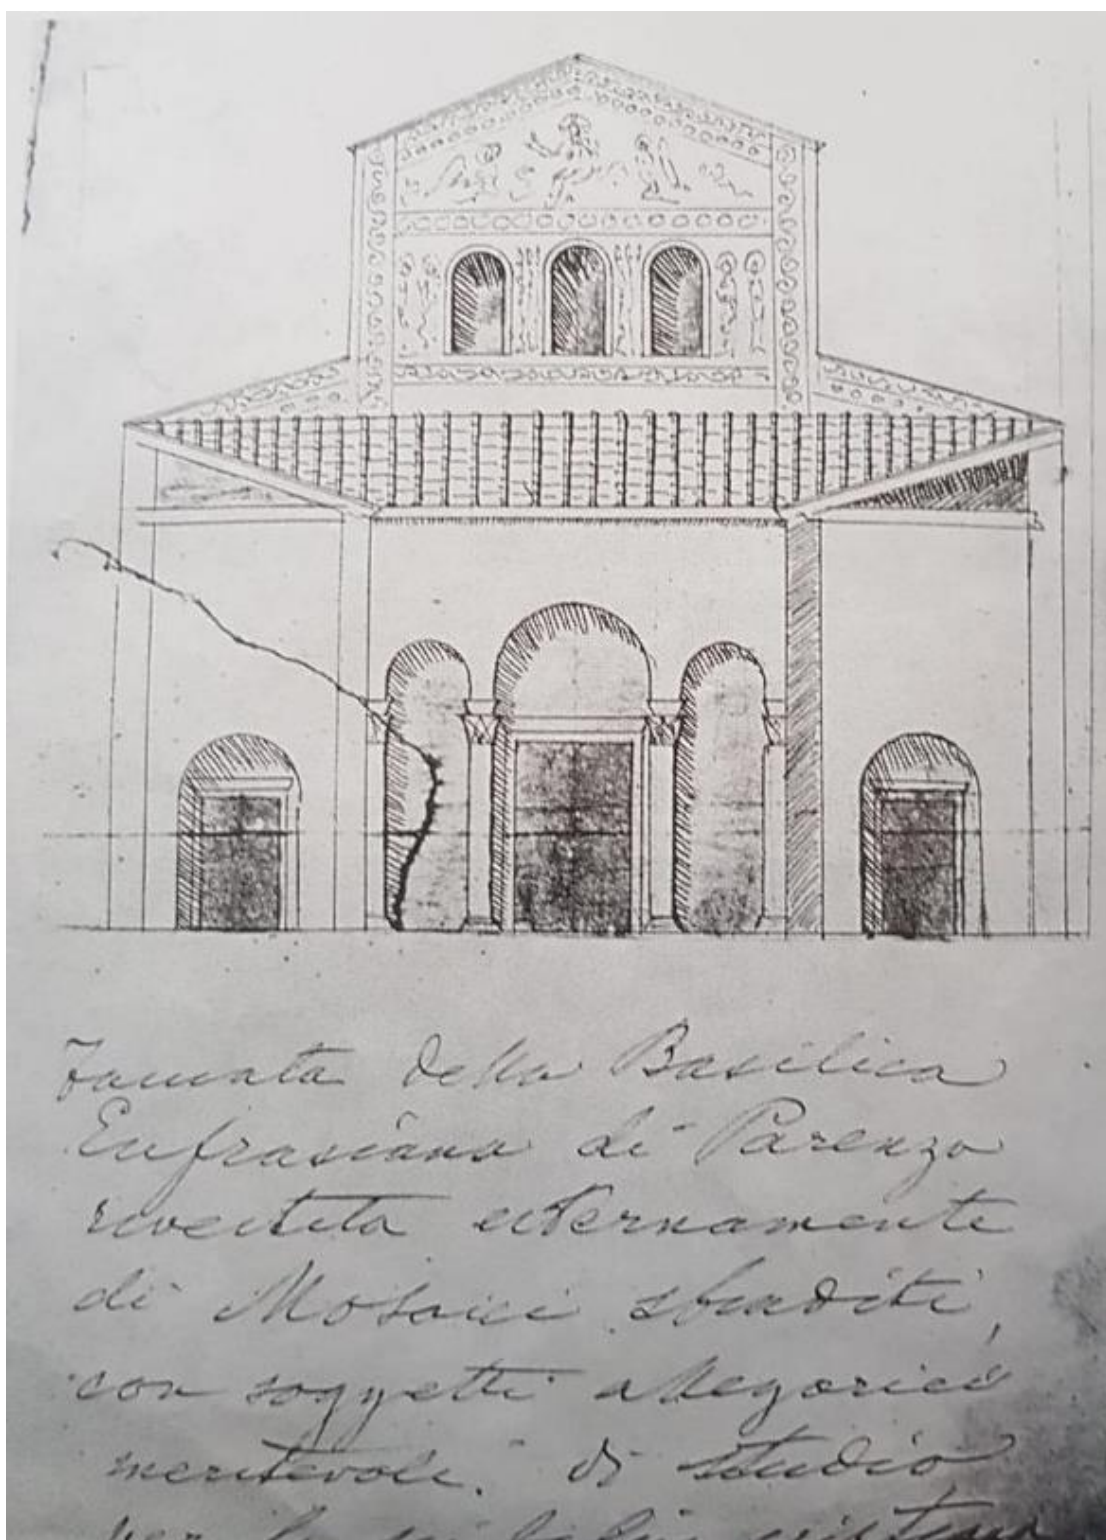 Facciata della Basilica
Eufrasiana di Parenzo
rivestita esternamente
di Mosaici sbiaditi,
con soggetti allegorici
meritevoli di studio
per la